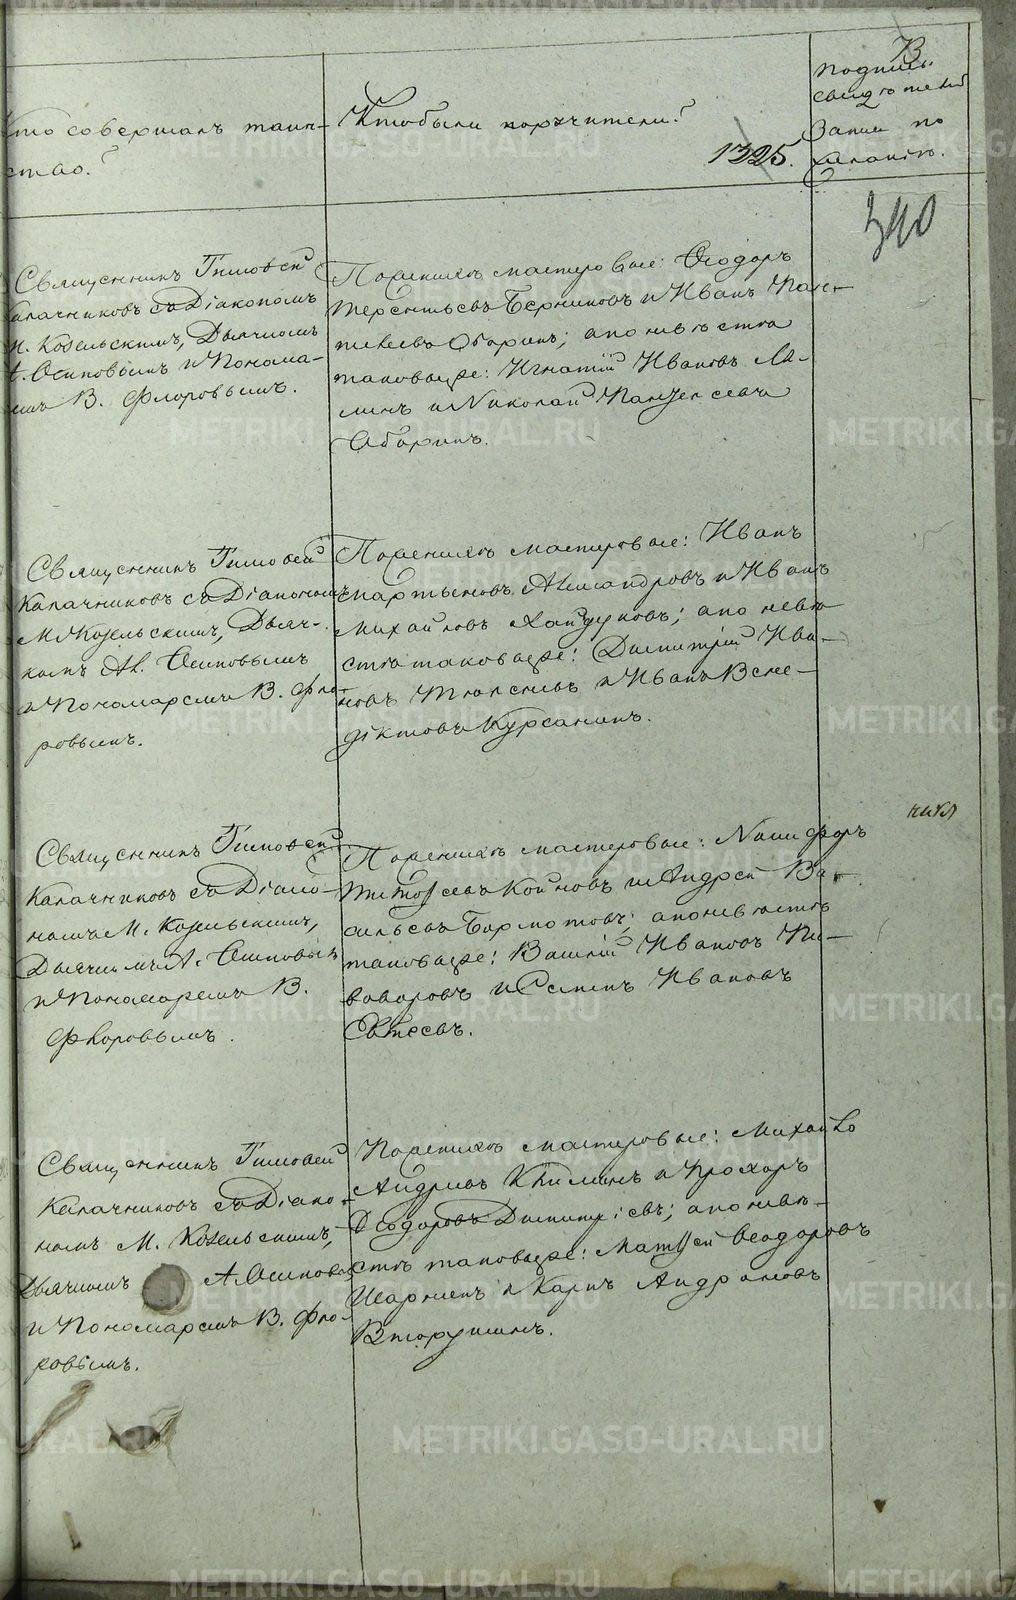 Кто совершалъ таин-
ство?
Кто были поручители?
1325.
73
подпись
свидетелей
записи по
желанію.
340
Священникъ Тимофей
Калачниковъ съ Діакономъ
М. Козельскимъ, Дьячкомъ
А. Осиповымъ и Понома-
ремъ В. Флоровымъ.
По женихѣ мастеровые: Ѳеодоръ
Терентьевъ Берниковъ и Иванъ Пан-
телеевъ Обаринъ; а по невѣстѣ
таковые же: Игнатій Ивановъ
и Николай
Обаринъ.
Священникъ Тимофей
Калачниковъ съ Діакономъ
М. Козельскимъ, Дьяч-
комъ Ал. Осиповымъ
и Пономаремъ В. Фло-
ровымъ.
По женихѣ мастеровые: Иванъ
Мартыновъ Александровъ и Иванъ
Михайловъ Хайдуковъ; а по невѣ-
стѣ таковые же: Димитрій Ива-
новъ и Иванъ Вене-
диктовъ Курсанинъ.
Священникъ Тимофей
Калачниковъ съ Діако-
номъ М. Козельскимъ,
Дьячкомъ А. Осиповымъ
и Пономаремъ В.
Флоровымъ.
По женихѣ мастеровые: Никифоръ
Тимофеевъ Койновъ и Андрей Ва-
сильевъ Бармотовъ; а по невѣстѣ
таковые же: Василій Ивановъ Пи-
воваровъ и Семенъ Ивановъ
Евтеевъ.
Священникъ Тимофей
Калачниковъ съ Діако-
номъ М. Козельскимъ,
Дьячкомъ А. Осиповымъ
и Пономаремъ В. Фло-
ровымъ.
По женихѣ мастеровые: Михайло
Андреевъ и Прохоръ
Ѳеодоровъ Димитріевъ; а по невѣ-
стѣ таковые же: Матѳей Ѳеодоровъ
и Карпъ Андроновъ
Вторушинъ.
METRIKI.GASO-URAL.RU